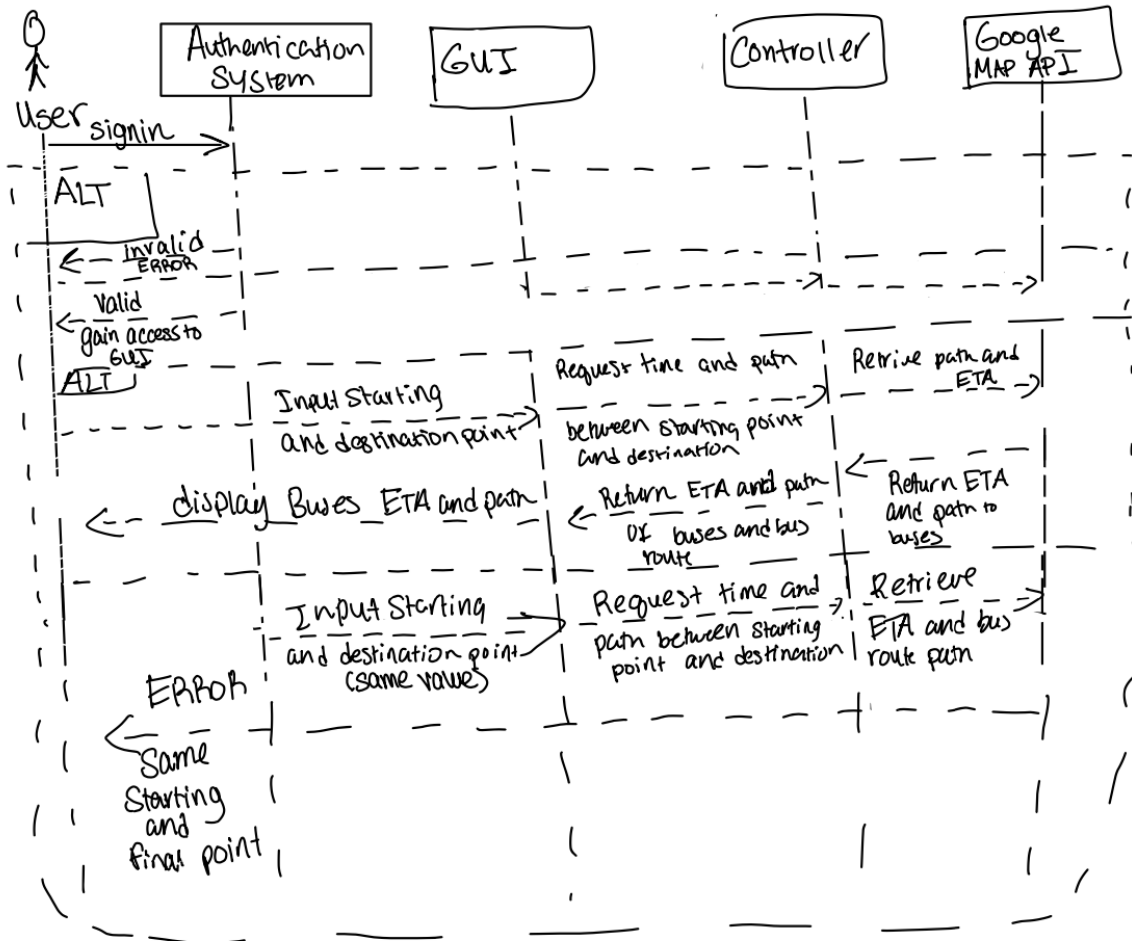 Authentication
SYStem
GUI
Controller
Google
MAP API
User
signin
ALT
Invalid
ERROR
Valid
gain access to
GUI
ALT
Input Starting
and destination point
Request time and path
between starting point
and destination
Retrive path and
ETA
Return ETA
and path to
buses
Return ETA and path
Of buses and bus
route
display Buses ETA and path
Input Starting
and destination point
(same value)
Request time and
path between starting
point and destination
Retrieve
ETA and bus
route path
ERROR
Same
Starting
and
final point